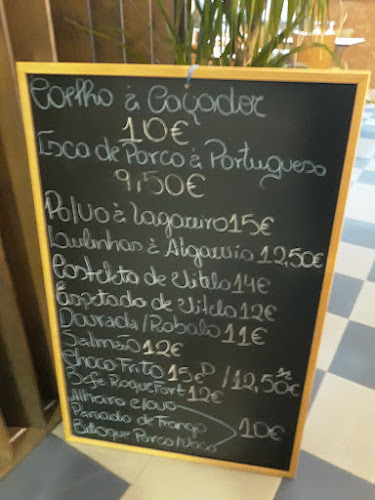 Coelho à Caçador
10€
Isca de Porco à Portuguesa
9,50€
Polvo à Lagareiro 15€
Lulinhas à Algarvia 12,50€
Costeleta de Vitela 14€
Espetado de Vitelo 12€
Dourada/Robalo 11€
Salmão 12€
Choco Frito 15€ D / 12,50€ ½
Bife Roquefort 12€
Alheira c/ovo
Panado de Frango 10€
Bitoque Porco/Vaca